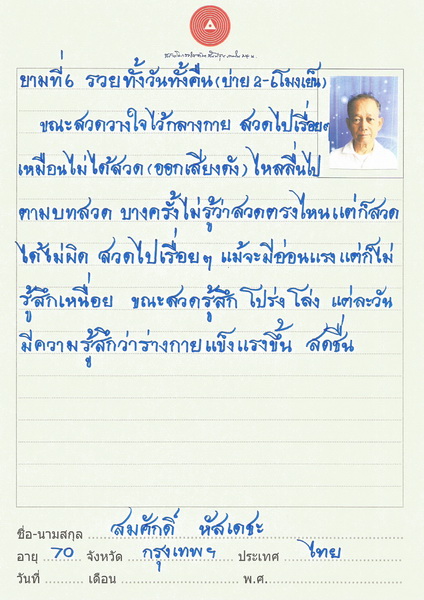 ยามที่ 6 รวยทั้งวันทั้งคืน (บ่าย 2-6 โมงเย็น)
ขณะสวดวางใจไว้กลางกาย สวดไปเรื่อยๆ
เหมือนไม่ได้สวด (ออกเสียงดัง) ไหลลื่นไป
ตามบทสวด บางครั้งไม่รู้ว่าสวดตรงไหนแต่ก็สวด
ได้ไม่ผิด สวดไปเรื่อย ๆ แม้จะมีอ่อนแรง แต่ก็ไม่
รู้สึกเหนื่อย ขณะสวดรู้สึก โปร่ง โล่ง แต่ละวัน
มีความรู้สึกว่าร่างกายแข็งแรงขึ้น สดชื่น
ชื่อ-นามสกุล สมศักดิ์ หัสเดชะ
อายุ 70 จังหวัด กรุงเทพฯ ประเทศ ไทย
วันที่ เดือน พ.ศ.